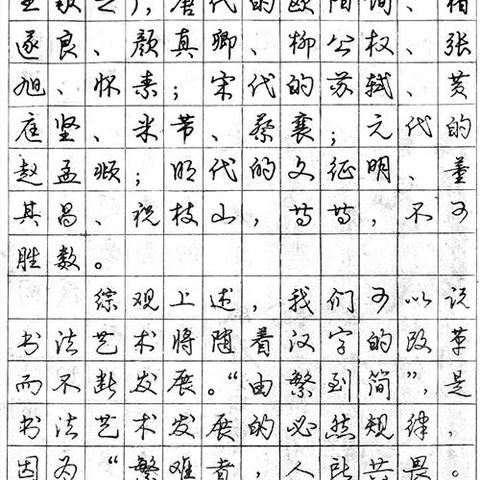 王献之），唐代的欧阳询、褚
遂良、颜真卿、柳公权、张
旭、怀素；宋代的苏轼、黄
庭坚、米芾、蔡襄；元代的
赵孟頫；明代的文征明、董
其昌、祝枝山，等等，不可
胜数。
综观上述，我们可以说
书法艺术将随着汉字的改革
而不断发展。“由繁到简”，是
书法艺术发展的必然规律，
因为“繁难者，人所共畏。